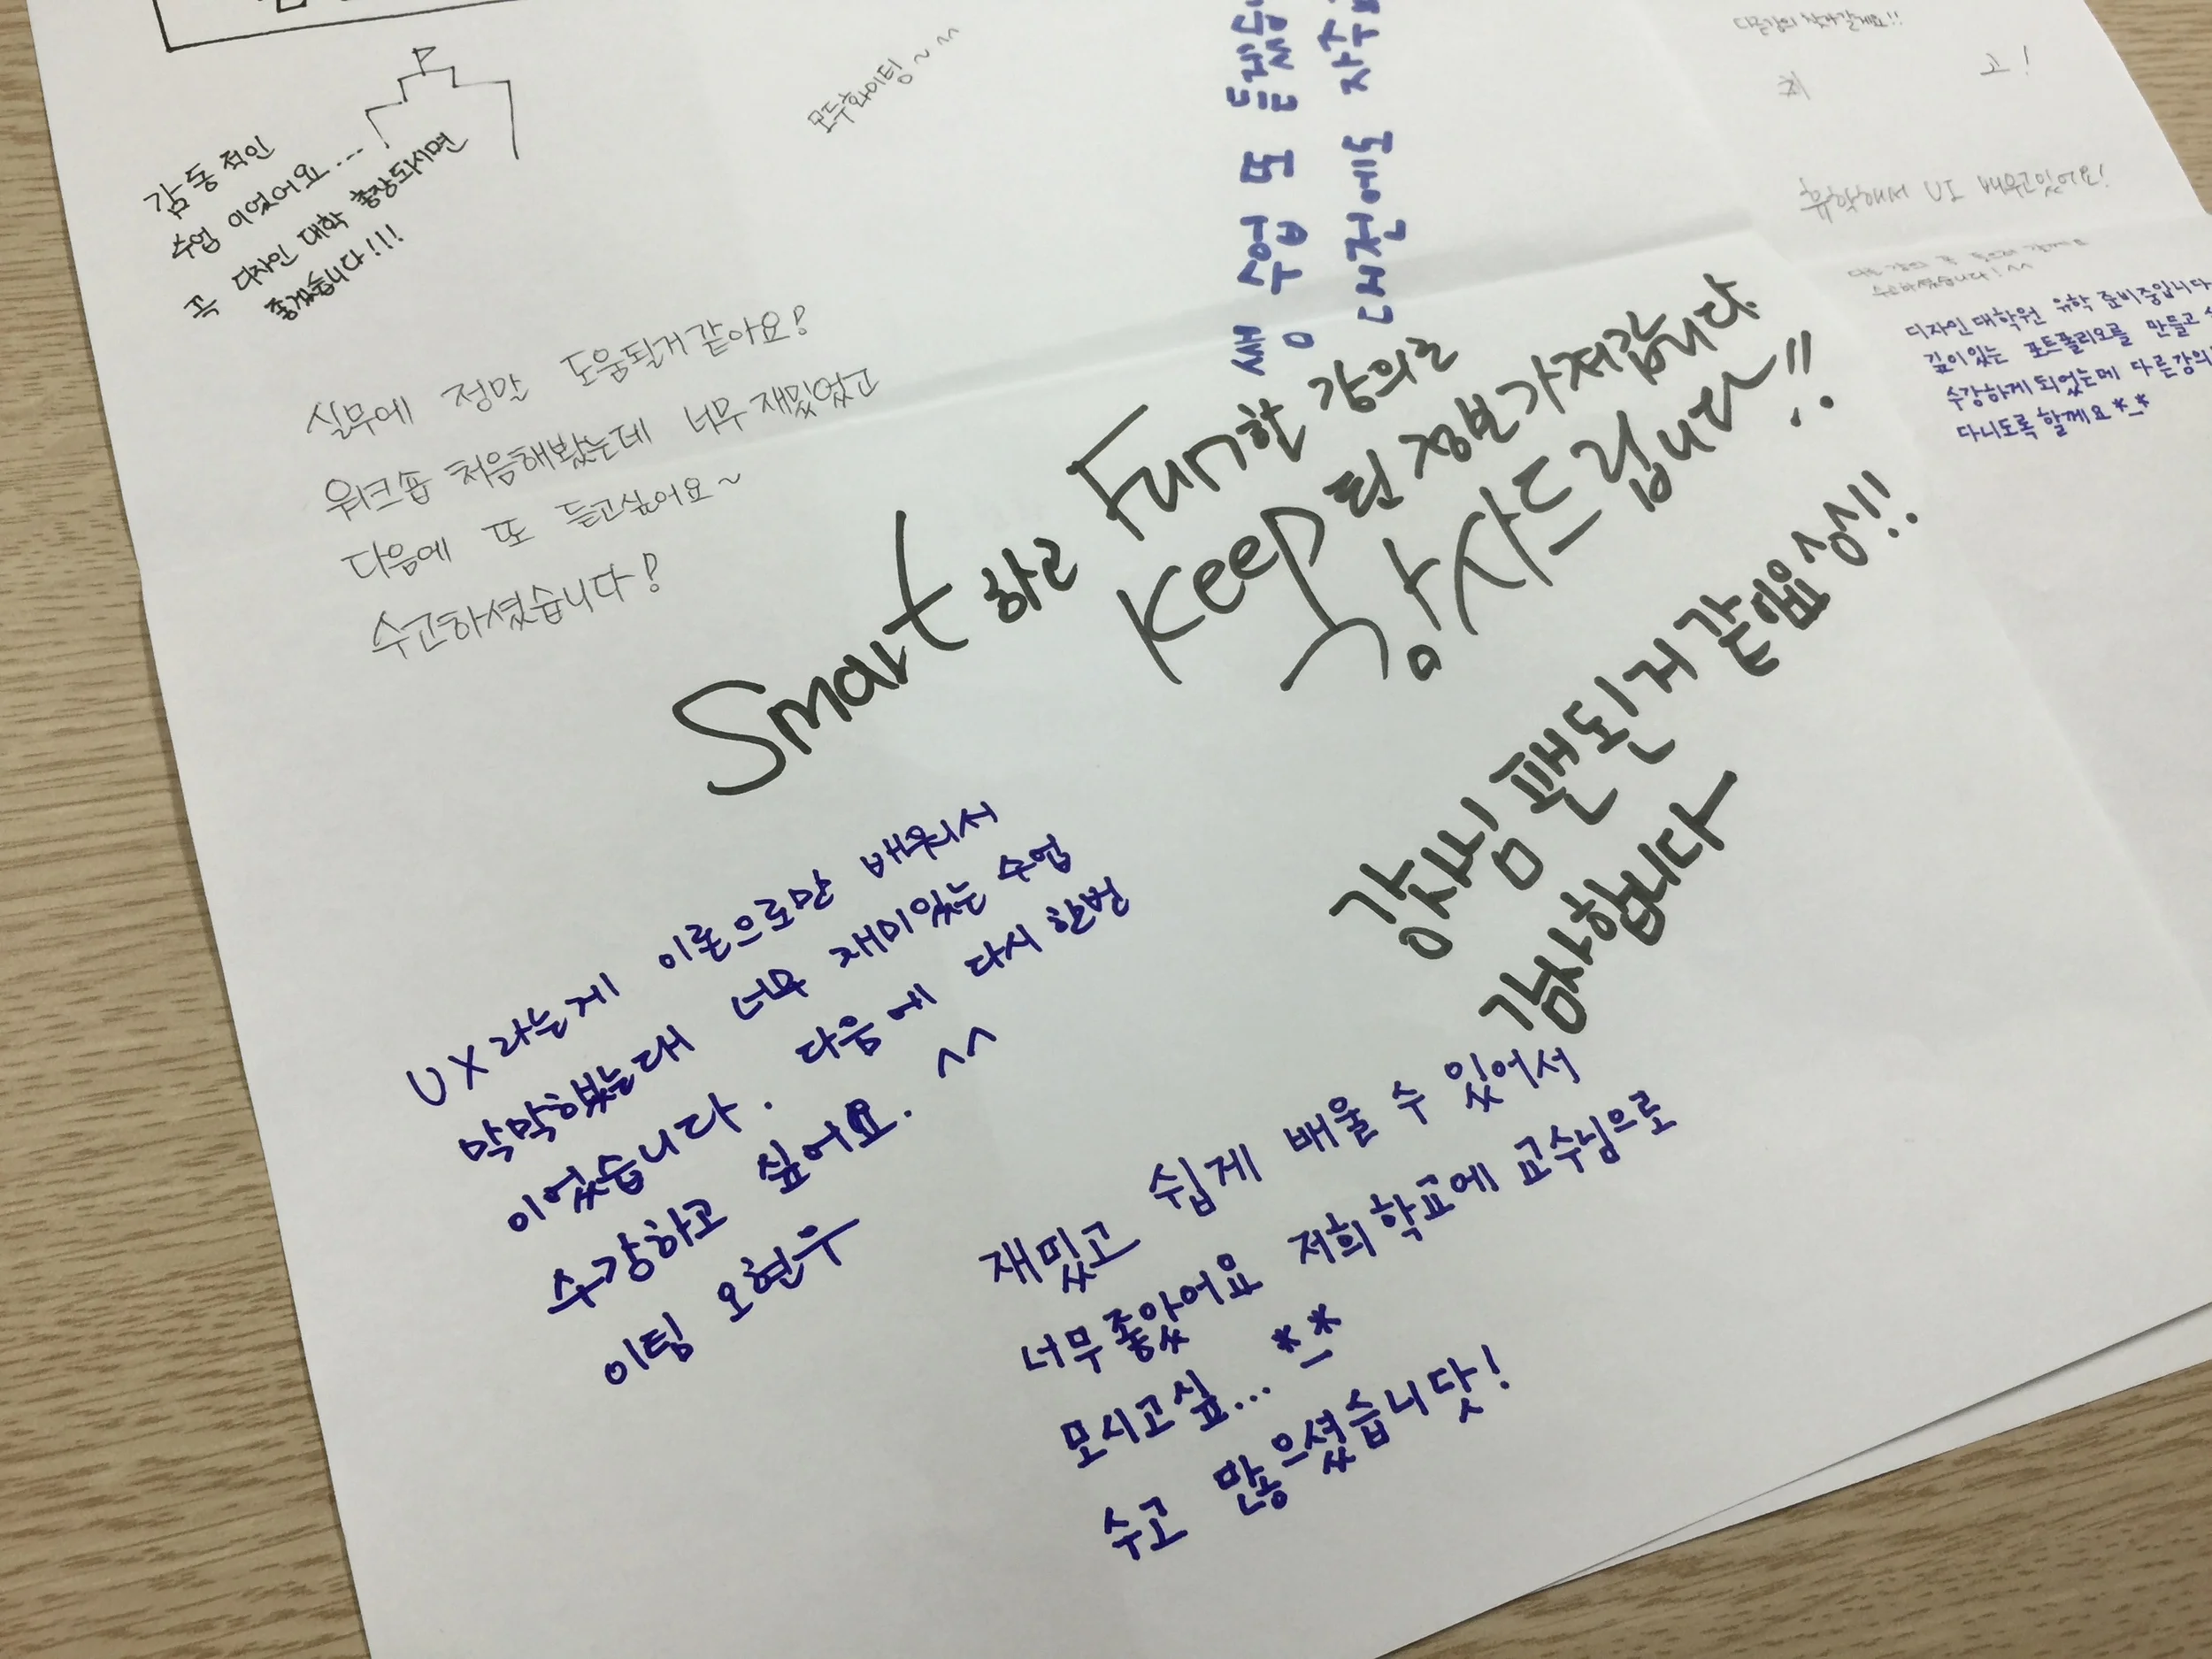 감동적인
수업 이었어요...
꼭 디자인 대학 총장되시면
좋겠습니다!!!
모두화이팅~^^
쌤 수업 또
대전에도 자주
다른강의 찾아갈게요!!
최 고!
휴학해서 UI 배우고있어요!
수고하셨습니다!^^
디자인대학원 유학 준비중입니다
깊이있는 포트폴리오를 만들고
수강하게 되었는데 다른강의
다니도록 할께요 *_*
실무에 정말 도움될거같아요!
워크숍 처음해봤는데 너무 재밌었고
다음에 또 듣고싶어요~
수고하셨습니다!
Smart하고 Fun한 강의로
Keep된 정보 가져갑니다.
감사드립니다!!
강사님 팬된거 같습니다!!
감사합니다
UX라는게 이론으로만 배워서
막막했는데 너무 재미있는 수업
이었습니다. 다음에 다시 한번
수강하고 싶어요. ^^
이팀 오현우
재밌고 쉽게 배울 수 있어서
너무좋았어요 저희학교에 교수님으로
모시고싶... *_*
수고 많으셨습니닷!